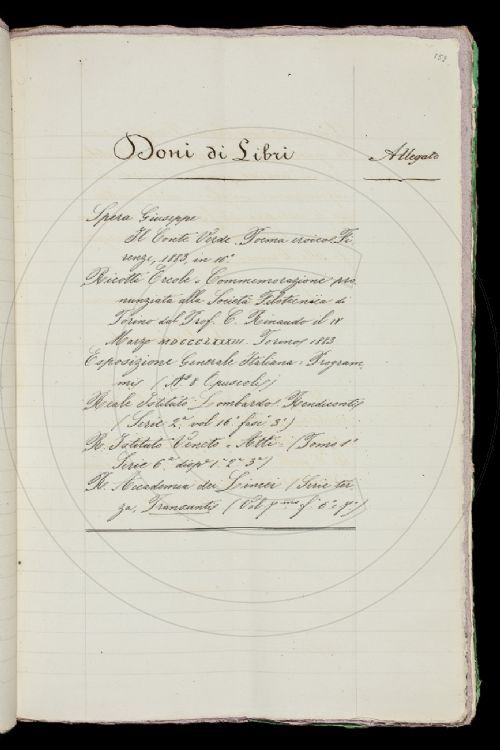 153
Doni di Libri
Allegato
Spera Giuseppe
Il Conte Verde. Poema eroico. Fi
renze, 1883, in 16°
Ricotti Ercole. Commemorazione pro
nunziata alla Società Filotecnica di
Torino dal Prof. C. Rinaudo il 18
Marzo MDCCCLXXXIII. Torino 1883
Esposizione Generale Italiana. Program
mi (N° 8 Opuscoli)
Reale Istituto Lombardo. Rendiconti
(Serie 2ª vol 16° fasc 5°)
R. Istituto Veneto. Atti. (Tomo 1°
Serie 6ª disp° 1ª 2ª 3ª)
R. Accademia dei Lincei (Serie ter
za, Transunti (Vol